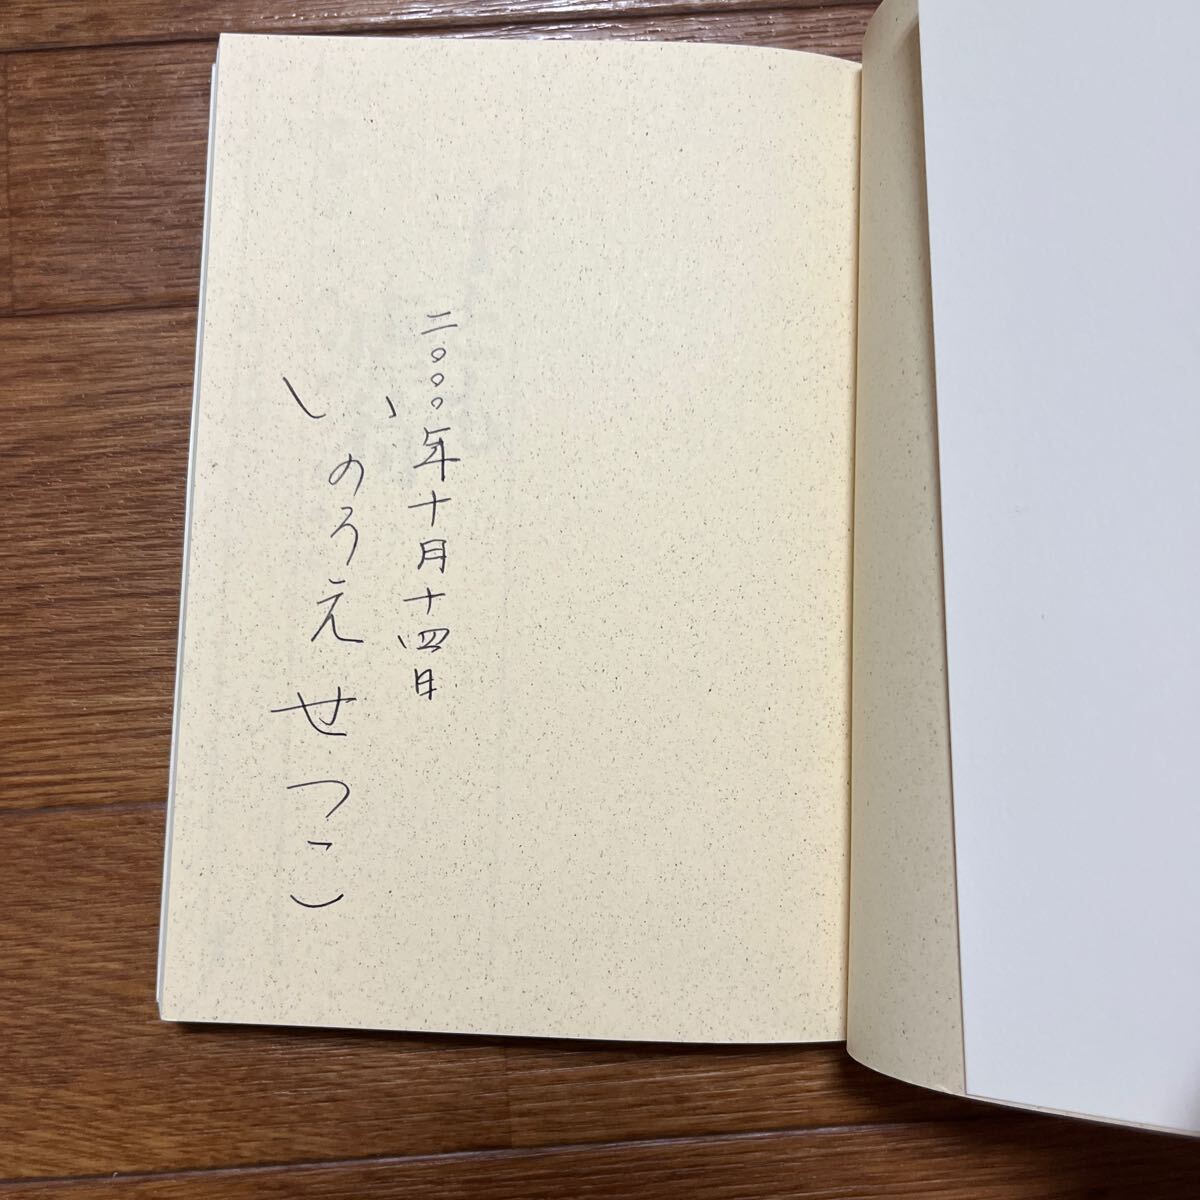 二〇〇〇年十月十四日
いのうえせつこ